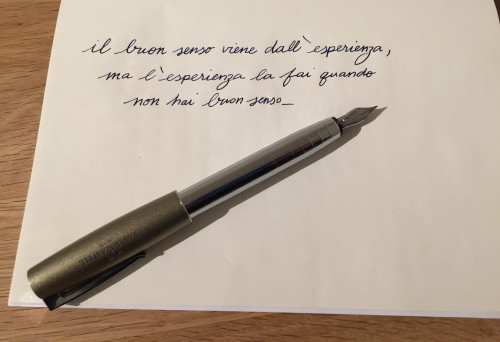 il buon senso viene dall'esperienza,
ma l'esperienza la fai quando
non hai buon senso_
FABER-CASTELL